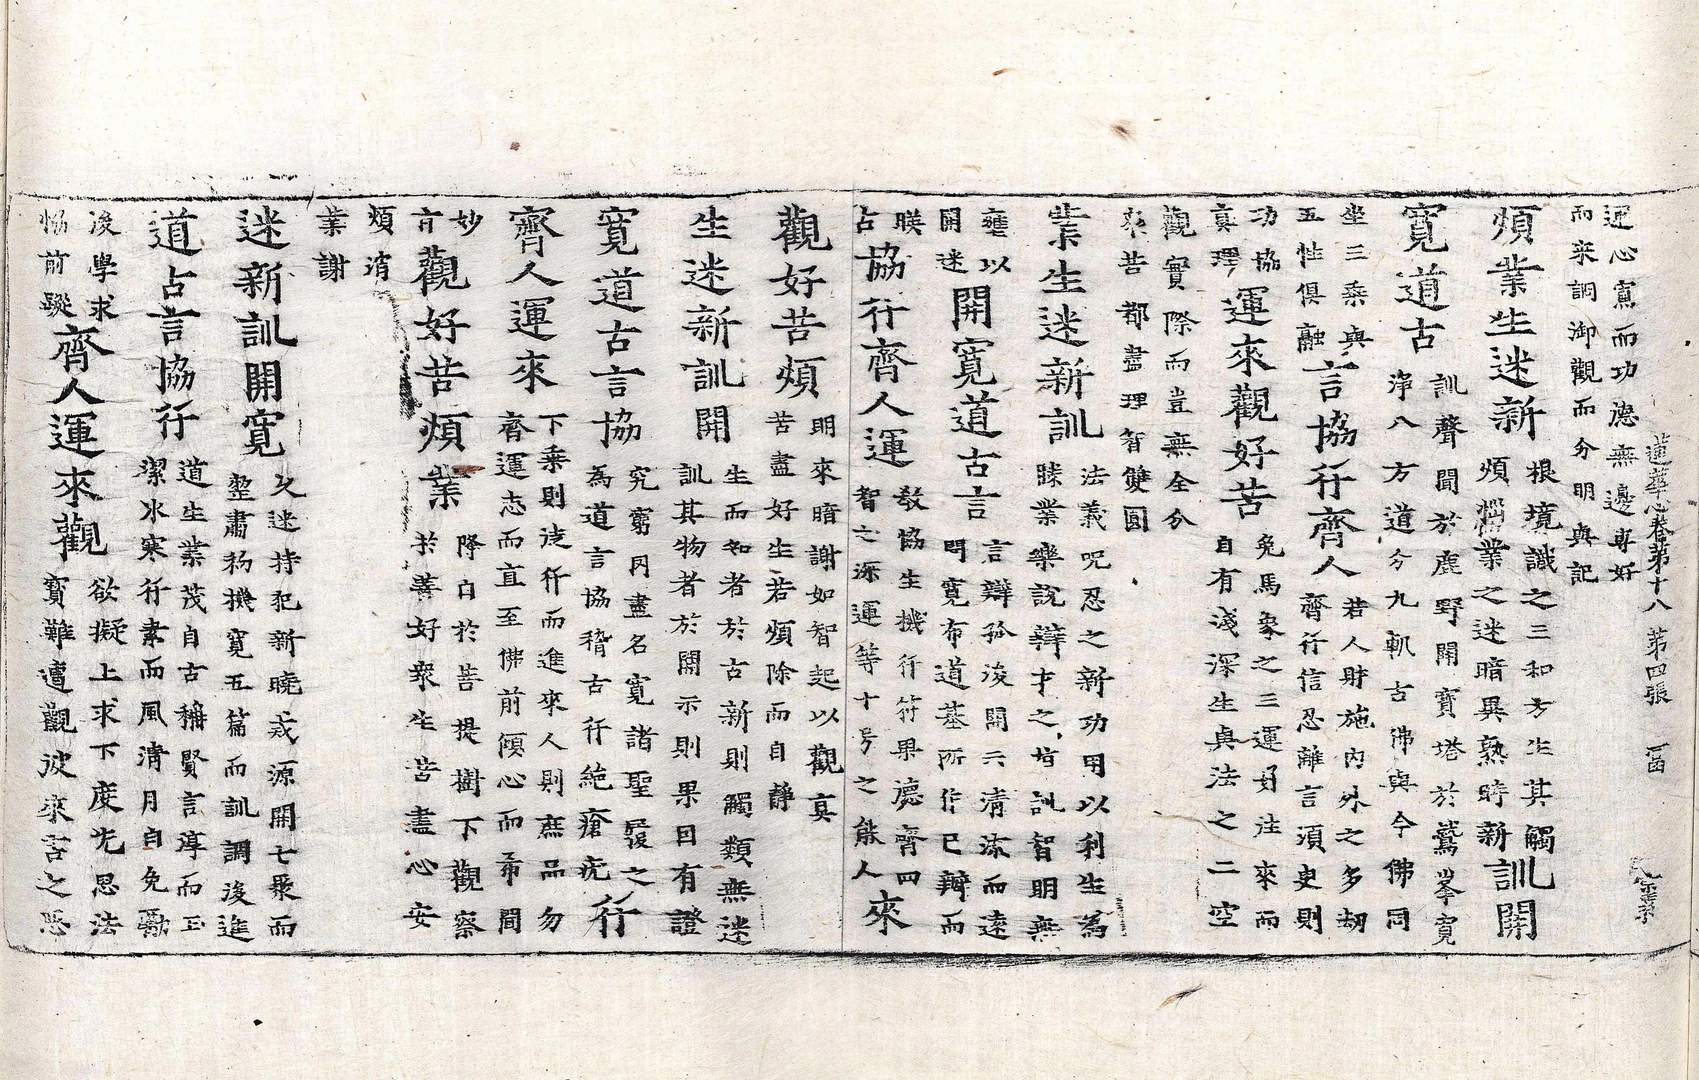 運心寬而功德無邊專好
而來調御觀而分明與記
蓮華心卷第十八 第四張
煩業生迷新 根境識之三和方生其觸
煩惱業之迷暗異熟時新 訓開
寬道古 訓聲聞於鹿野開寶塔於鷲峯寬
淨八方道今九軌古佛與今佛同
坐三乘與
五性俱融 言協行齊人 若人財施內外之多劫
齊行信忍離言須臾則
功協
真理 運來觀好苦 兔馬象之三運好往來而
自有淺深生真法之二空
觀實際而豈無全分
來苦都盡理智雙圓
業生迷新訓 法義呪忍之新功用以利生為
業樂說辯才之 訓智明無
壅以
開迷 開寬道古言 言辯於後開示清涼而遠
問寬布道基所作已辦而
古 協行齊人運 敬協生機行符果德齊四
智之深運等十号之能人 來
觀好苦煩 明來暗謝如智起以觀真
苦盡好生若煩除而自靜
生迷新訓開 生而知者於古新則觸類無迷
訓其物者於開示則果因有證
寬道古言協 究窮內盡名寬諸聖履之
為道言協稽古行絕瘡疣 行
齊人運來 下乘則從行而進來人則庶品勿
齊運志而直至佛前傾心而希聞
妙
言 觀好苦煩業 降自於菩提樹下觀察
於善好眾生苦盡心安
煩消
業謝
迷新訓開寬 久迷持犯新曉戒源開七聚而
整肅物機寬五篇而訓調後進
道古言協行 道生業茂自古稱賢言淳而正
潔冰寒行素而風清月自免
後學求
協前蹤 齊人運來觀 欲擬上求下度先思法
寶難遭觀彼來言之